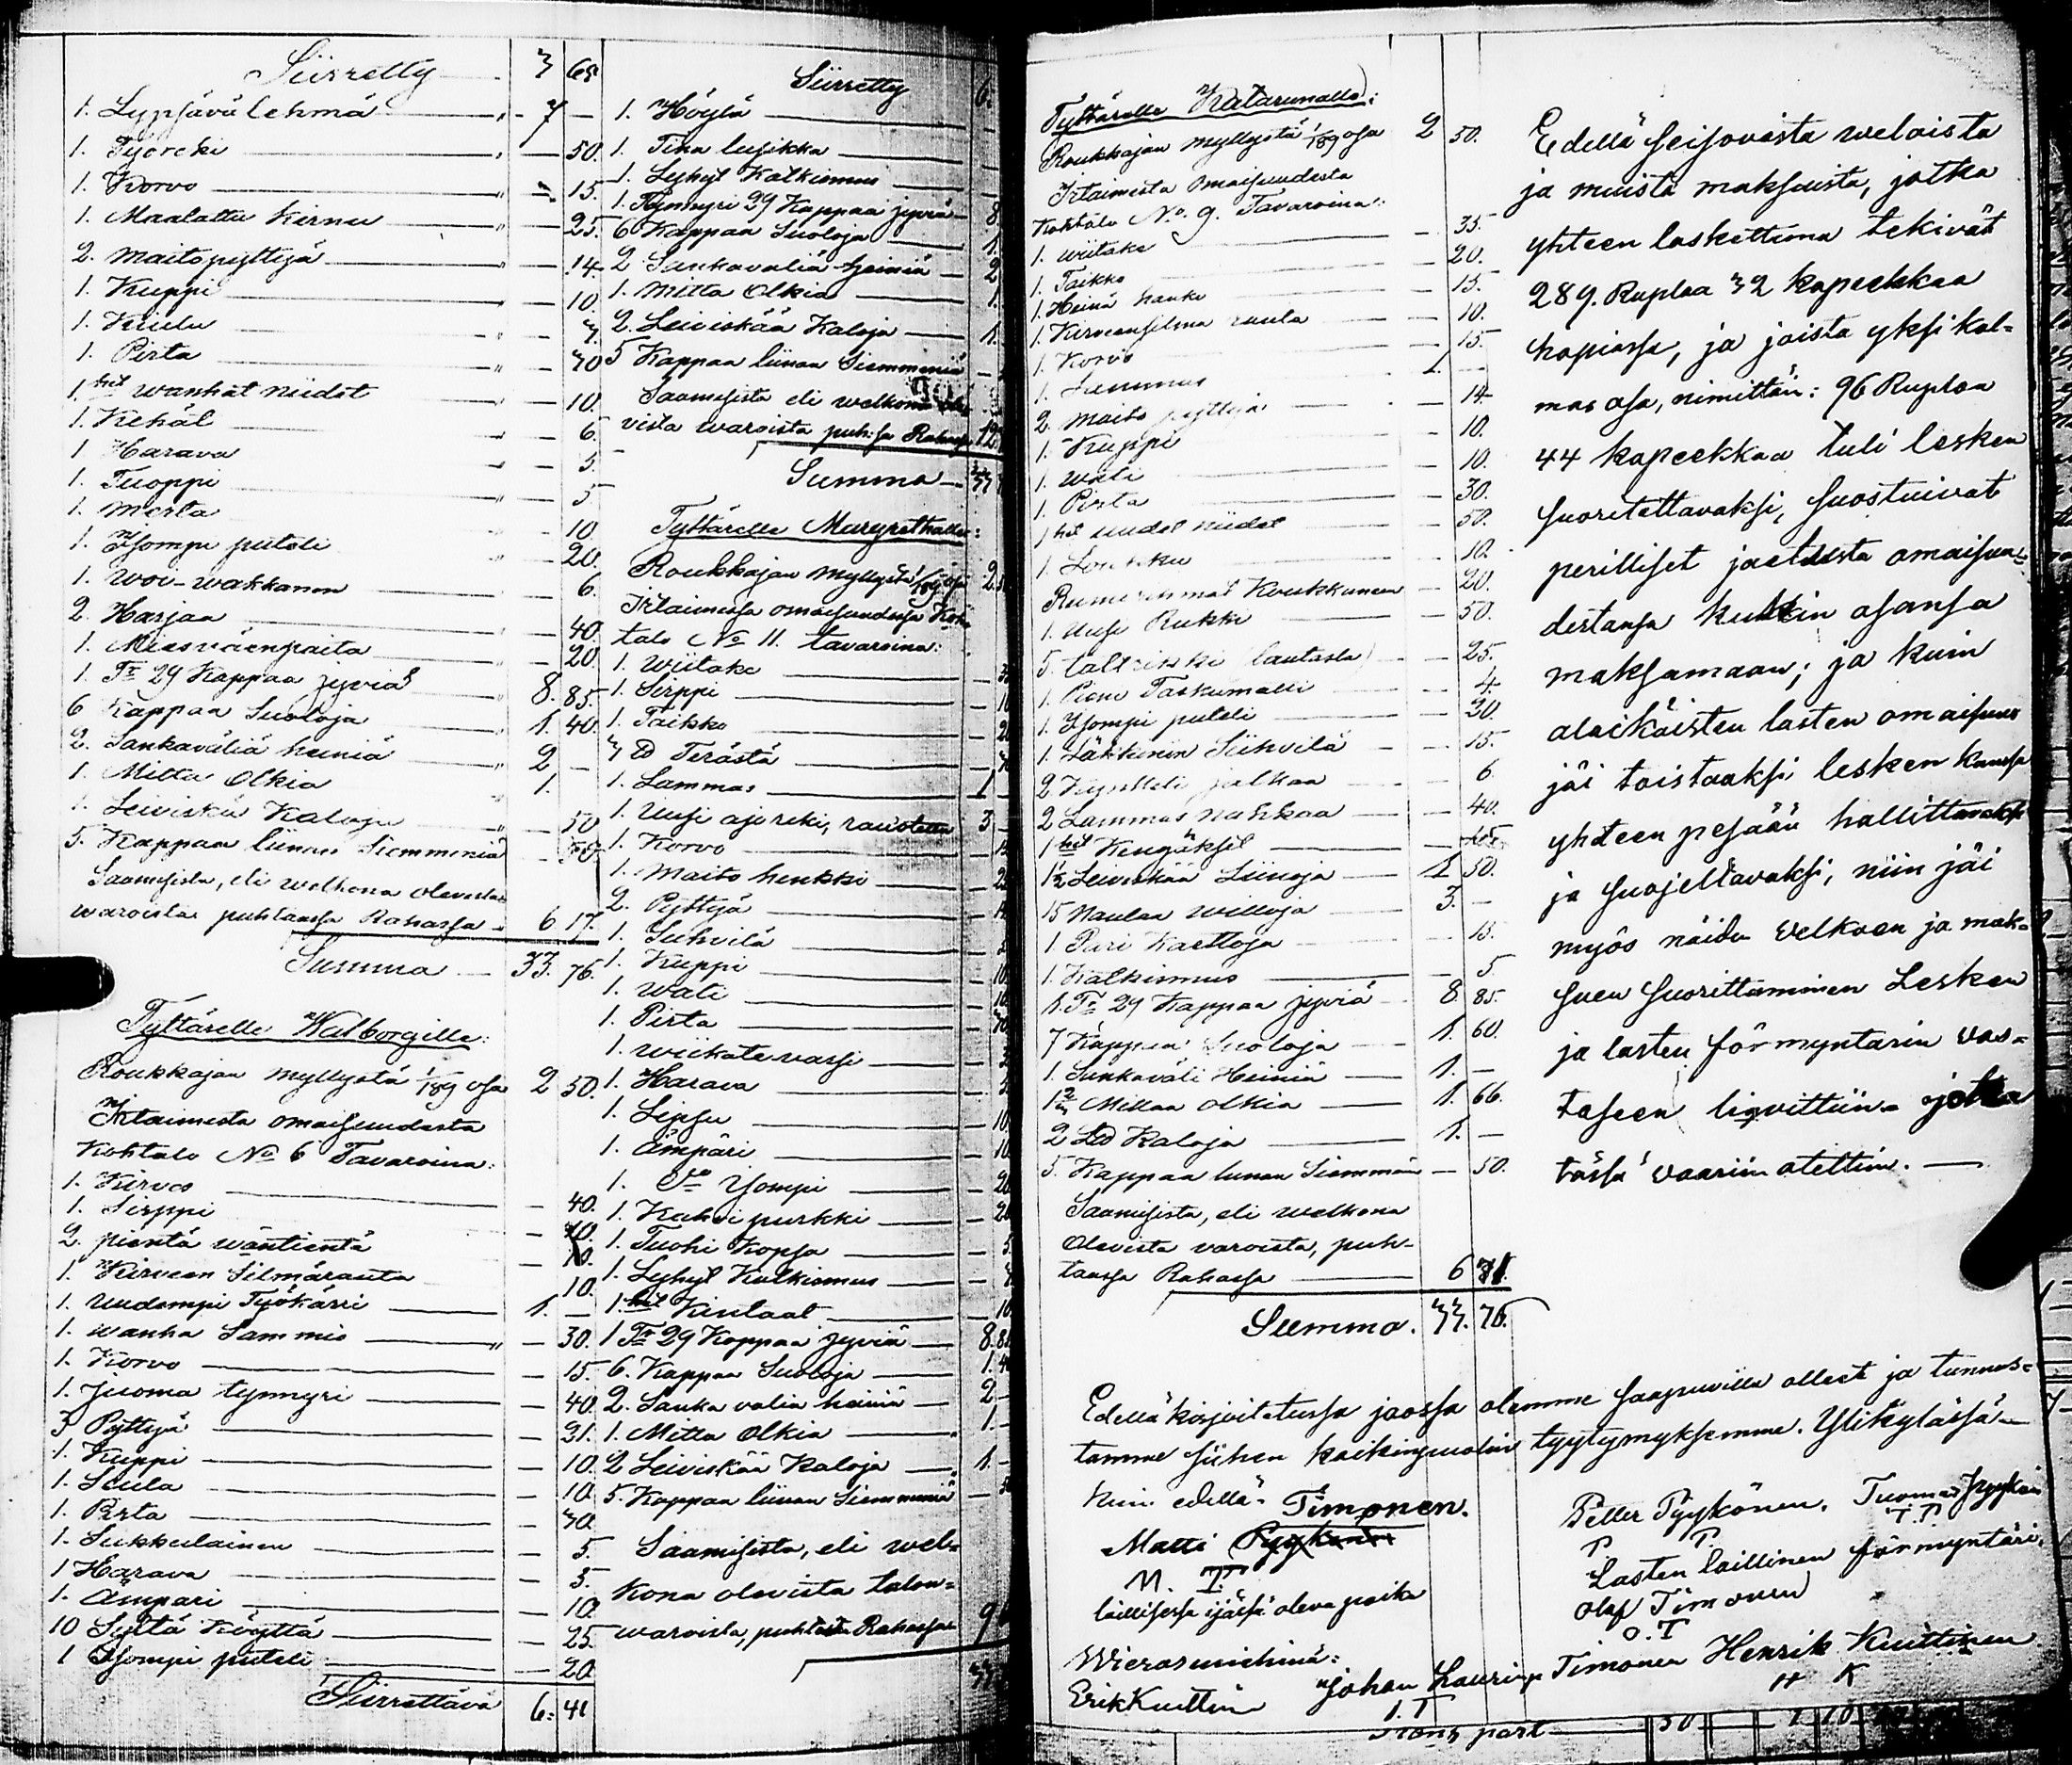 Siirretty 3 65.
1. Lypsävä lehmä " - 7 -
1. Työreki " - 50.
1. Korvo " - 15.
1. Maalattu Kirnu " - 25.
2. Maitopyttyjä " - 14
1. Kuppi " - 10.
1. " - 7.
1. Pirta " - 70
1. het wanhat niidet " - 10.
1. Kehät " - 6.
1 Harava " - 5.
1. Tuoppi " - 5
1. Merta - 10
1. Isompi puteli " - 20.
1. Woi-wakkanen - 6.
2. Harjaa - 40.
1. Miesväenpaita - 20.
1. Tr 29 Kappaa jyviä " 8. 85.
6 Kappaa Suoloja 1. 40.
2. Sankaväliä heiniä " 2 -
1. Mitta Olkia 1.
1. Leiviskä Kaloja " - 50
5. Kappaa liinan Siemmeniä - 50
Saamisista, eli welkona olevista
waroista puhtaassa Rahassa " 6 17.
Summa 33. 76.
Tyttärelle Walborgille:
Roukkajan Myllystä 1/189 osa 2 50.
Irtaimesta omaisuudesta
Kohtalo No 6 Tavaroina:
1. Kirves - 40.
1. Sirppi - 10.
2. pientä wäntientä - 10.
1. Kirveen Silmärauta 10.
1. Uudempi Työkärri 1. -
1. wanha Sammio " - 30.
1. Korvo - 15.
1. Juoma tynnyri - 40.
3 Pyttyjä - 21.
1. Kuppi - 10.
1. Seula - 10.
1. Pirta - 70
1. Sukkulainen - 5.
1 Harava - 5.
1. Ämpäri - 10.
10 Syltä Köyttä - 25.
1 Isompi puteli - 20
Siirrettävä 6. 41
Siirretty 6.
1. Höylä
1. Tina lusikka
1. Lyhyt Katkismus
1. Tynnyri 29 Kappaa jyviä 8
6 Kappaa Suoloja 1.
2 Sankaväliä heiniä 2
1. Mitta Olkia 1.
2. Leiviskää Kaloja 1.
5 Kappaa liinan Siemmeniä
Saamisista eli welkona
vista waroista puh:sa Rahassa
Summa 33
Tyttärelle Margrethalle:
Roukkajan Myllystä 1/189 osa 2.
Irtaimessa omaisuudessa Koh
talo No 11. tavaroina:
1. Wiitake
1. Sirppi
1. Taikko
3 lb Terästä
1. Lammas 1
1. Uusi ajoreki, raudoitettu 3
1. Korvo
1. Maito henkki
2. Pyttyjä
1. Suhvilä
1. Kuppi 10
1. Wati 10
1. Pirta 70
1. wiikatevarsi
1. Harava
1. Lipsu 10.
1. Ämpäri 10
1. Po Isompi 20
1. Kahvi purkki
1. Tuohi Kopsa 5
1. Lyhyt Katkismus
1. het Kintaat 10
1 Tr 29 Kappaa jyviä 8.
6. Kappaa Suoloja 1.
2. Sanka väliä heiniä 2
1. Mitta Olkia 1.
2 Leiviskää Kaloja 1.
5. Kappaa liinan Siemmeniä
Saamisista, eli wel-
kona olevista talon-
waroista, puhtassa Rahassa
Tyttärelle Katarinalle:
Roukkajan Myllystä 1/189 osa 2 50.
Irtaimesta Omaisuudesta
Kohtalo No. 9. Tavaroina:
1. wiitake - 35.
1. Taikko - 20.
1. Heinä hanko - 15.
1. Kirveensilmä rauta - 10.
1. Korvo - 15.
1. Lammas 1. -
2. Maito pyttyjä - 14
1. Kuppi - 10.
1. wati - 10.
1. Pirta - 30.
1 het uudet niidet - 50.
1. Loukku - 10.
- 20.
1. Uusi Rukki - 50.
5. taltrikkiä (lautasta) - 25.
1. Pieni Taskumatti - 4.
1. Isompi puteli - 30.
1. Läkkinin Siihvilä - 15.
2 Kynttilä jalkaa - 6.
2 Lammas nahkaa - 40.
1 het Kengäkset
1½ Leiviskää Liinoja 1 50.
15 Naulaa willoja 3. -
1 Pari Karttoja - 15.
1. Katkismus - 5.
1. Tr 29 Kappaa jyviä 8 85.
7 Kappaa Suoloja 1. 60.
1. Sankaväli Heiniä 1. -
1⅔ Mittaa Olkia 1. 66.
2 Lb Kaloja 1. -
5. Kappaa liinan Siemmen - 50.
Saamisista, eli welkona
olevista varoista, puh-
taassa Rahassa 6 71.
Summa. 33. 76.
Edellä seisovista weloista
ja muista maksuista, jotka
yhteen laskettuna tekivät
289. Ruplaa 32 kopeekkaa
hopiassa, ja joista yksi kol-
mas osa, nimittäin: 96 Ruplaa
44 kopeekkaa tuli lesken
suoritettavaksi, suostuivat
perilliset jaetusta omaisuu-
destansa kukin osansa
maksamaan; ja kuin
alaikäisten lasten omaisuus
jäi toistaiseksi lesken kanssa
yhteen pesään hallittavaksi
ja suojeltavaksi, niin jäi
myös näiden Velkaen ja mak-
suen suorittaminen Lesken
ja lasten förmyntärin vas-
taseen liqvittiin, jotka
tässä vaariin otettiin.
Edelläkirjoitetussa jaossa olemme saapuvilla olleet ja tunnus-
tamme siihen kaikinpuolin tyytymyksemme. Ylikylässä
kuin edellä.
Timonen.
Matti Pyykönen
M. T.
laillisessa ijässä oleva poika
Petter Pyykönen. Tuomas Pyykön
P P T.P
Lasten laillinen förmyntäri,
Olof Timonen
O. T
Wierasmiehinä:
Erik Kuittin Johan Laurinp Timonen Henrik Kuittinen
I. T H K
Trans port 50